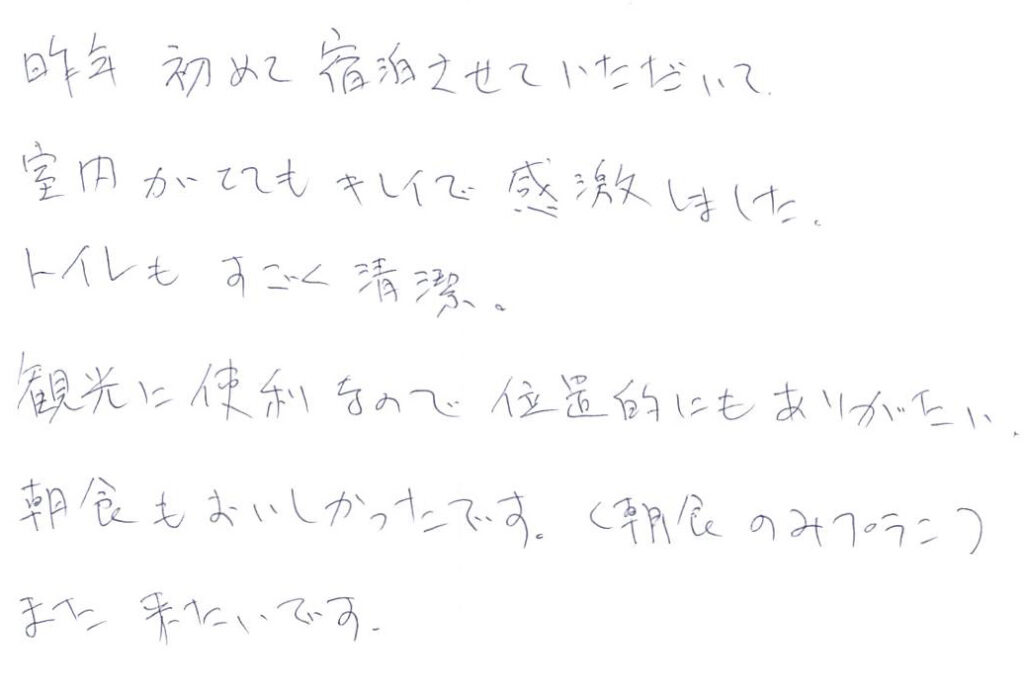 昨年 初めて 宿泊させていただいて
室内がとてもキレイで 感激しました。
トイレも すごく清潔。
観光に便利なので 位置的にもありがたい。
朝食もおいしかったです。(朝食のみプラン)
また 来たいです。